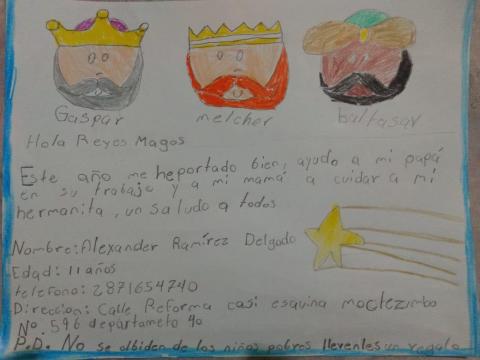 Gaspar melcher baltasar
Hola Reyes Magos
Este año me heportado bien, ayudo a mi papá
en su trabajo y a mi mamá a cuidar a mi
hermanita, un saludo a todos
Nombre: Alexander Ramírez Delgado
Edad: 11 años
telefono: 2871654740
Direccion: Calle Reforma casi esquina moctezimba
No. 596 departameto 40
P.D. No se olbiden de los niños pobres llevenles un regalo